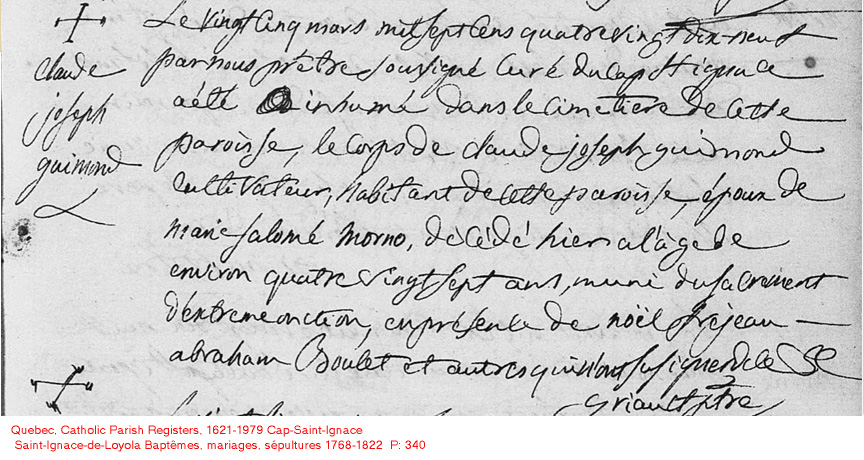 Le vingt cinq mars mil sept cens quatre vingt dix-neuf
claude
joseph
guimond
par nous prêtre soussigné curé du cap St ignace
a été inhumé dans le cimetiere de cette
paroisse, le corps de claude joseph guimond
cultivateur, habitant de cette paroisse, époux de
marie salomé morno, décédé hier a l'âge de
environ quatre vingt sept ans, muni du sacrement
d'extremeonction, en présence de noël
abraham Boulet et autres qui n'ont su signer de ce
ptre
Quebec, Catholic Parish Registers, 1621-1979 Cap-Saint-Ignace
Saint-Ignace-de-Loyola Baptêmes, mariages, sépultures 1768-1822 P: 340